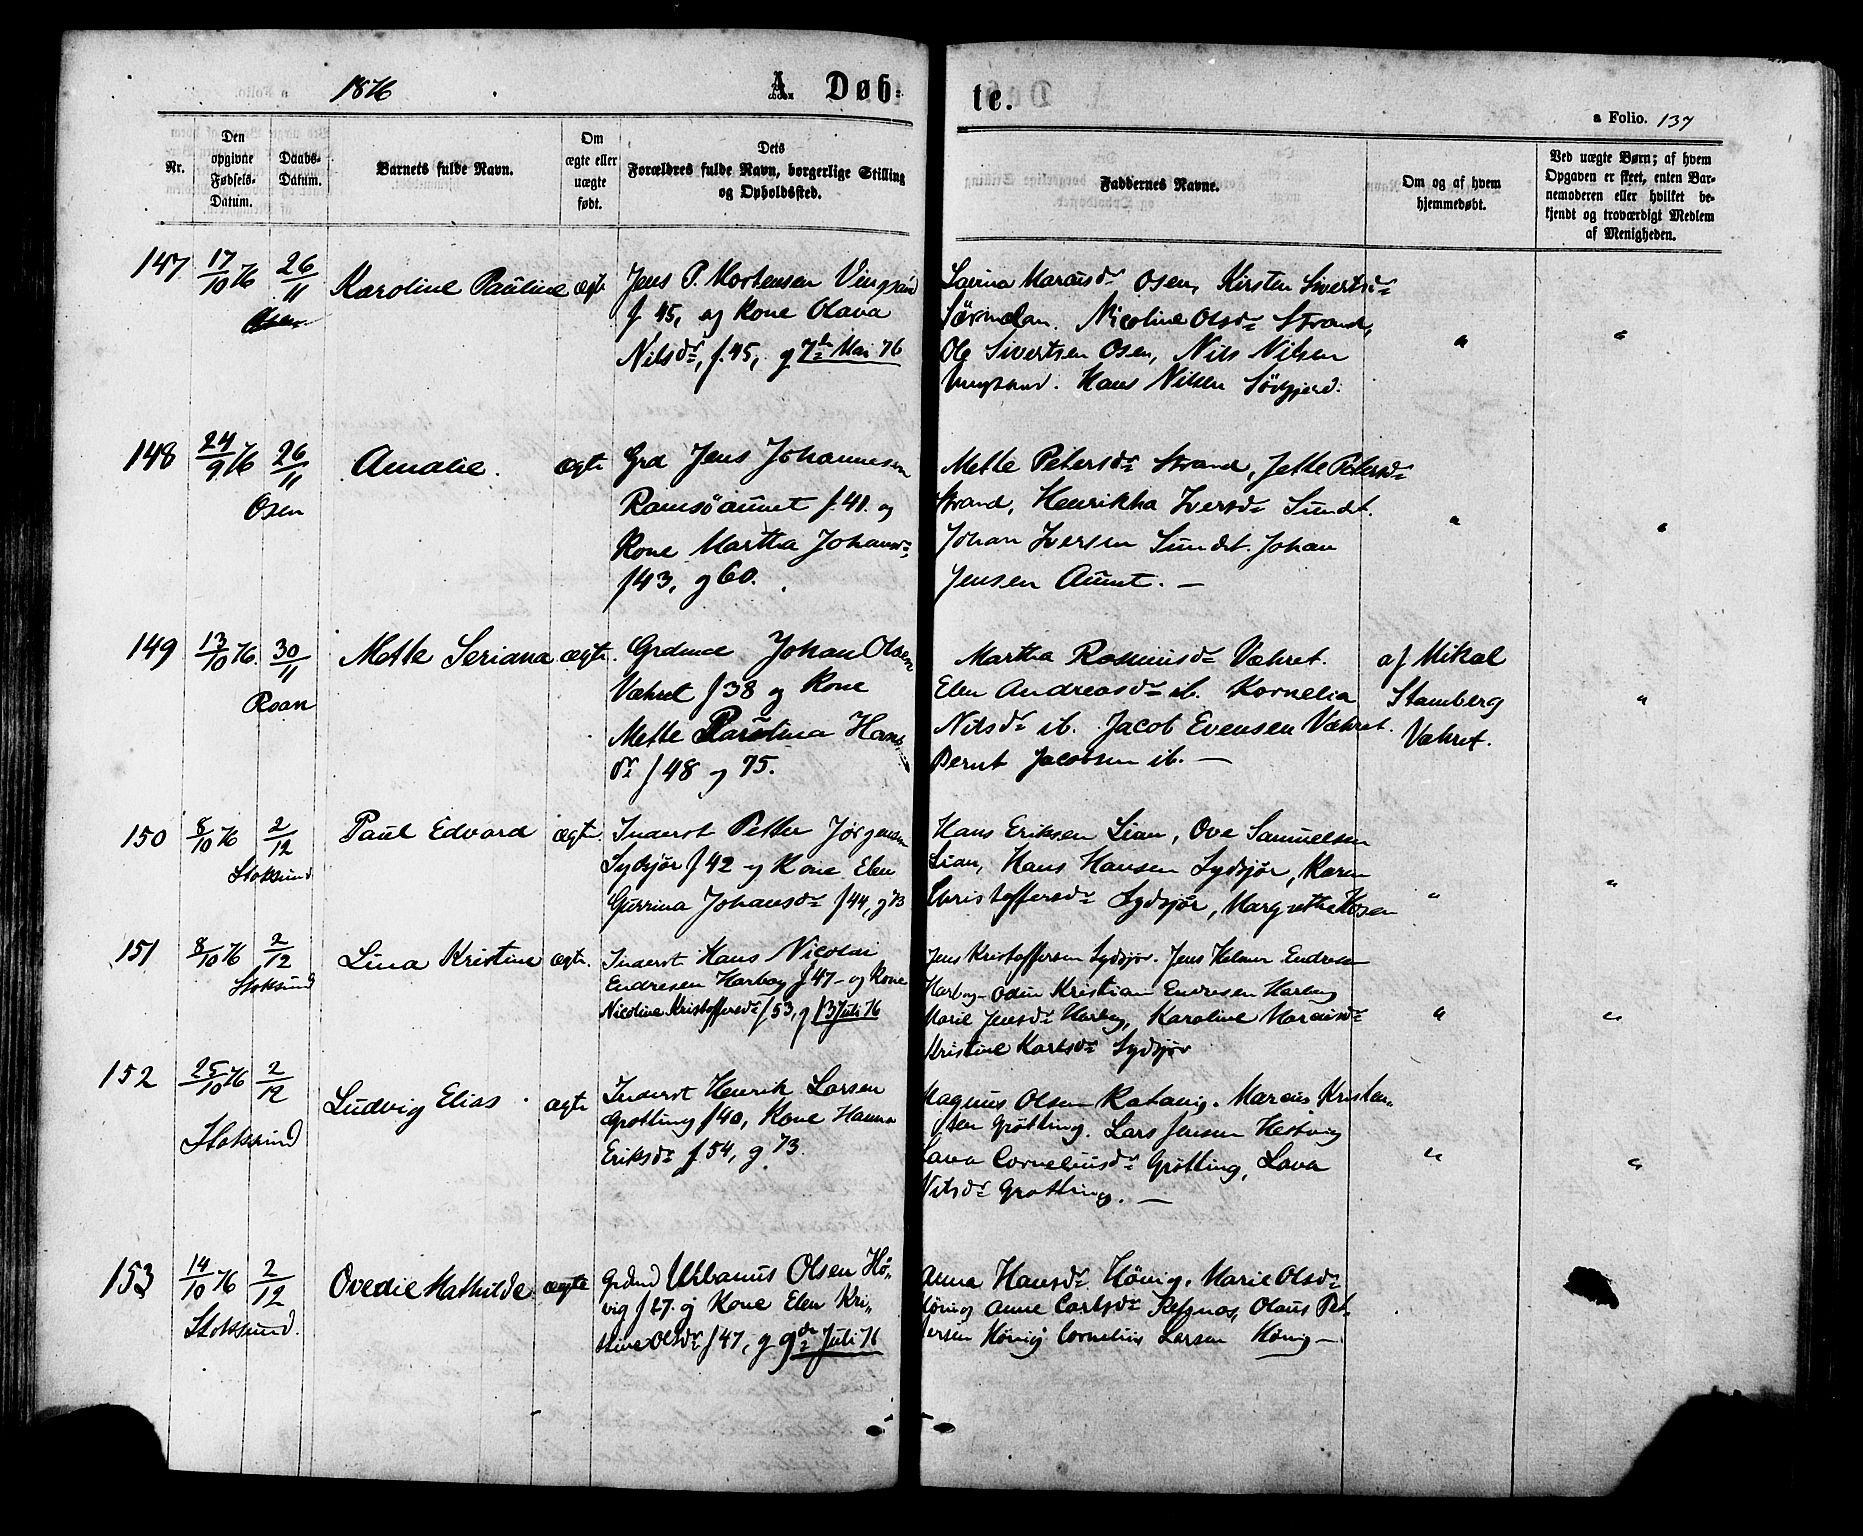 1876
A Døb-
te.
a Folio. 137
Nr.
Den opgivne Fødsels-Datum.
Daabs-Datum.
Barnets fulde Navn.
Om ægte eller uægte født.
Dets Forældres fulde Navn, borgerlige Stilling og Opholdssted.
Faddernes Navne.
Om og af hvem hjemmedøbt.
Ved uægte Børn; af hvem Opgaven er skeet, enten Barnemoderen eller hvilket bekjendt og troværdigt Medlem af Menigheden.
147 17/10 76 26/11 Karoline Pauline ægte
Osen
Jens P. Mortensen Vingsand
f 45, og Kone Olava
Nilsdr, f. 45, g 7de Mai 76
Marcusdr Osen, Kirsten Sivertsdr
Nicoline Olsdr Strand,
Ole Sivertsen Osen, Nils Nilsen
Vingsand. Hans Nilsen
" "
148 24/9 76 26/11 Amalie. ægte
Osen
Grd Jens Johannesen
Ramsøaunet f. 41. og
Kone Martha Johansdr
f 43, g 60.
Mette Petersdr Strand, Jette Petersdr
Strand, Henrikha Iversdr Sundet.
Johan Iversen Sundet. Johan
Jensen Aunet. —
" "
149 13/10 76. 30/11 Mette Seriana ægte.
Roan
Johan Olsen
Væhret f 38 og Kone
Mette Paulina Hans-
dr f 48 g 75.
Martha Rasmusdr Væhret.
Elen Andreasdr ib. Kornelia
Nilsdr ib. Jacob Evensen Væhret.
Bernt Jacobsen ib. —
af Mikal
Stamberg
Væhret.
"
150 8/10 76 2/12 Paul Edvard ægte.
Stoksund
Inderst Petter Jørgensen
Sydsjør f 42 og Kone Elen
Gurrina Johansdr f 44, g 73
Hans Eriksen Lian, Ove Samuelsen
Lian, Hans Hansen Sydsjør, Karen
Christoffersdr Sydsjør, Margrethe Kosen
" "
151 8/10 76 2/12 Lina Kristine ægte.
Stoksund
Inderst Hans Nicolai
Endresen Harbog f 47 - og Kone
Nicoline Kristoffersdr f 53, g 13 Juli 76
Jens Kristoffersen Sydsjør. Jens Helmer Endresen
Harbog - Odin Kristian Endresen Harbog
Marie Jensdr Harbog, Karoline Marcusdr
Kristine Karlsdr Sydsjør
" "
152 25/10 76 2/12 Ludvig Elias. ægte
Stoksund
Inderst Henrik Larsen
Grøtting f 40, Kone Hanna
Eriksdr f. 54, g 73.
Magnus Olsen Ratvig. Marcus Kristen-
sen Grøtting. Lars Jensen Hestvig
Lava Corneliusdr Grøtting, Lava
Nilsdr Grøtting. —
" "
153 14/10 76 2/12 Ovedie Mathilde ægte
Stoksund.
Grdmd Urbanus Olsen Hø-
vig f 27. og Kone Elen Kri-
stine Olsdr f 47, g 9de Juli 76
Anna Hansdr Hövig. Marie Olsdr
Hövig Anne Carlsdr Refsnas, Olaus Pet-
tersen Hövig Cornelius Larsen Hövig —